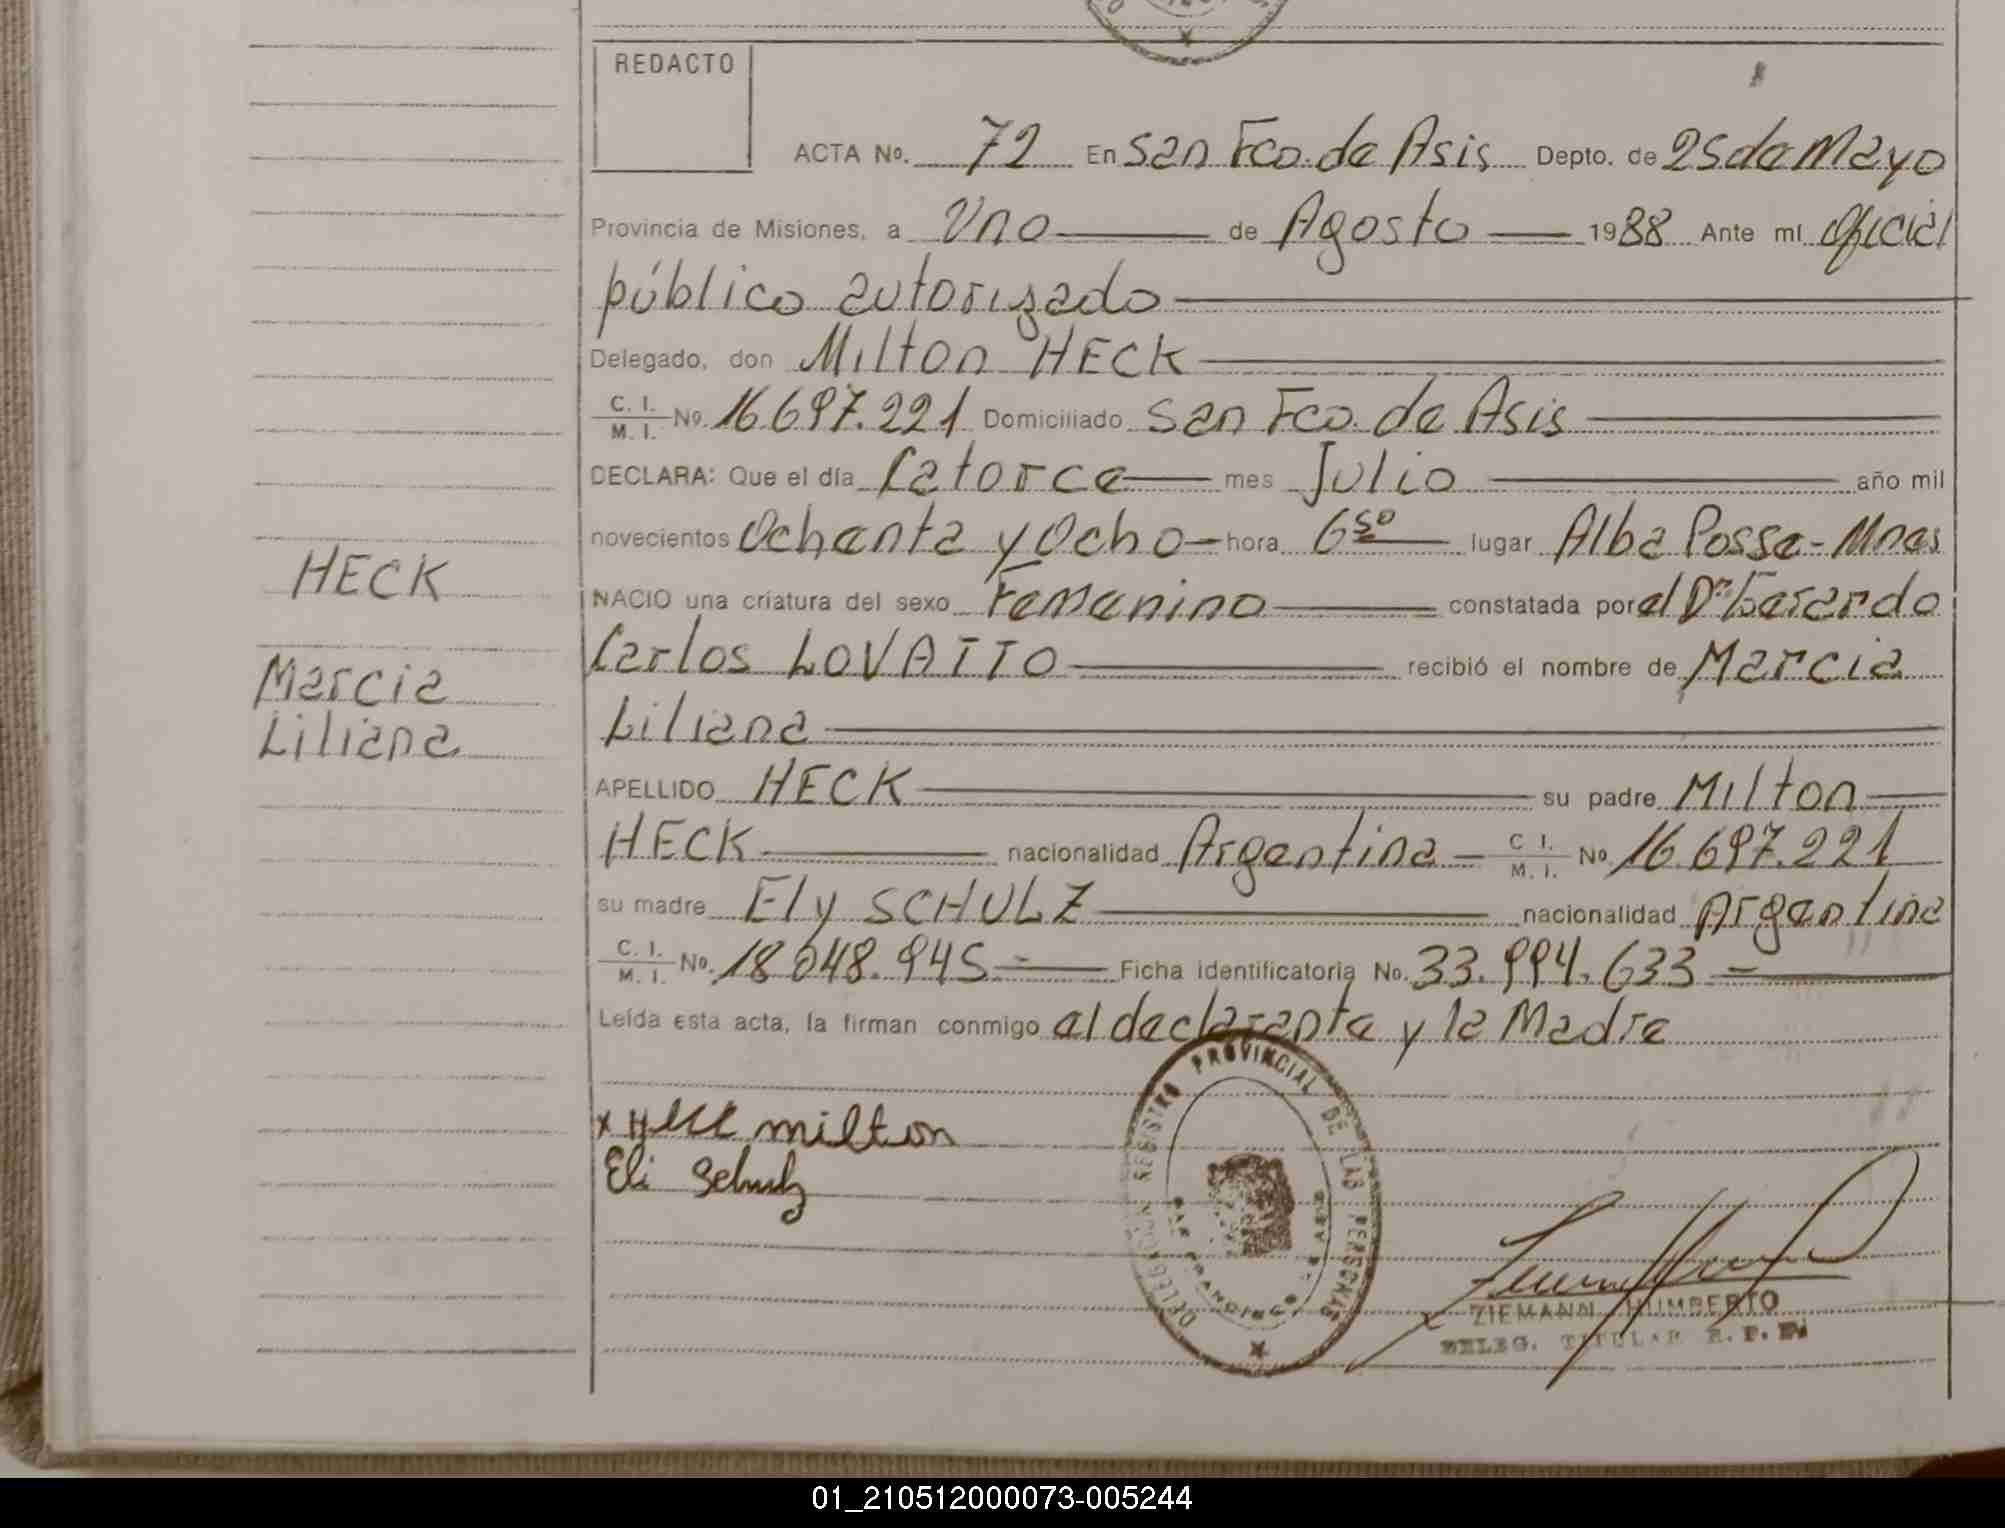 REDACTO
ACTA No. 72 En San Fco. de Asis Depto. de 25 de Mayo
Provincia de Misiones, a Uno de Agosto 1988 Ante mi Oficial
público autorizado
Delegado, don Milton HECK
C. I. M. I. No. 16.697.221 Domiciliado San Fco. de Asis
DECLARA: Que el día Catorce mes Julio año mil
novecientos Ochenta y Ocho hora 6 50 lugar Alba Posse - Mnes
NACIO una criatura del sexo Femenino constatada por el Dr. Gerardo
Carlos LOVATTO recibió el nombre de Marcia
Liliana
APELLIDO HECK su padre Milton
HECK nacionalidad Argentina C I. M. I. No. 16.697.221
su madre Ely SCHULZ nacionalidad Argentina
C. I. M. I. No. 18.048.945 Ficha identificatoria No. 33.994.633
Leída esta acta, la firman conmigo el declarante y la Madre
HECK
Marcia
Liliana
x Heck milton
Eli Schulz
DELEGACION REGISTRO PROVINCIAL DE LAS PERSONAS
SAN FRANCISCO DE ASIS
ZIEMANN HUMBERTO
DELEG. TITULAR R. P. P.
01_210512000073-005244